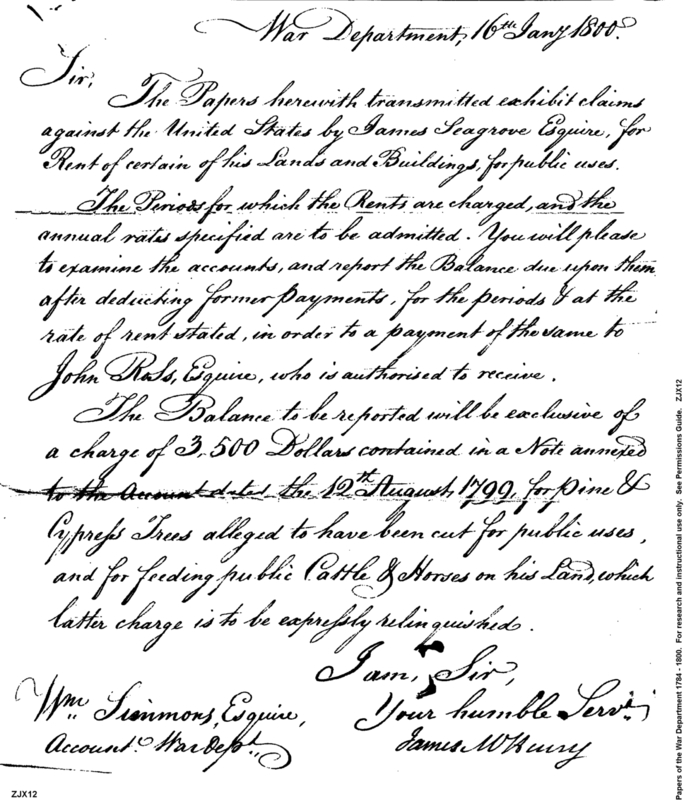 War Department, 16th Jany 1800.
Sir,
The Papers herewith transmitted exhibit claims
against the United States by James Seagrove Esquire, for
Rent of certain of his Lands and Buildings, for public uses.
The Periods for which the Rents are charged, and the
annual rates specified are to be admitted. You will please
to examine the accounts, and report the Balance due upon them
after deducting former payments, for the periods & at the
rate of rent stated, in order to a payment of the same to
John Ross, Esquire, who is authorised to receive.
The Balance to be reported will be exclusive of
a charge of 3,500 Dollars contained in a Note annexed
to the Account dated the 12th August 1799, for Pine &
Cypress Trees alleged to have been cut for public uses,
and for feeding public Cattle & Horses on his Land, which
latter charge is to be expressly relinquished.
I am, Sir,
Your humble Servt.
James McHenry
Wm. Simmons, Esquire,
Accountt. War Dept.
ZJX12
Papers of the War Department 1784 - 1800. For research and instructional use only. See Permissions Guide. ZJX12